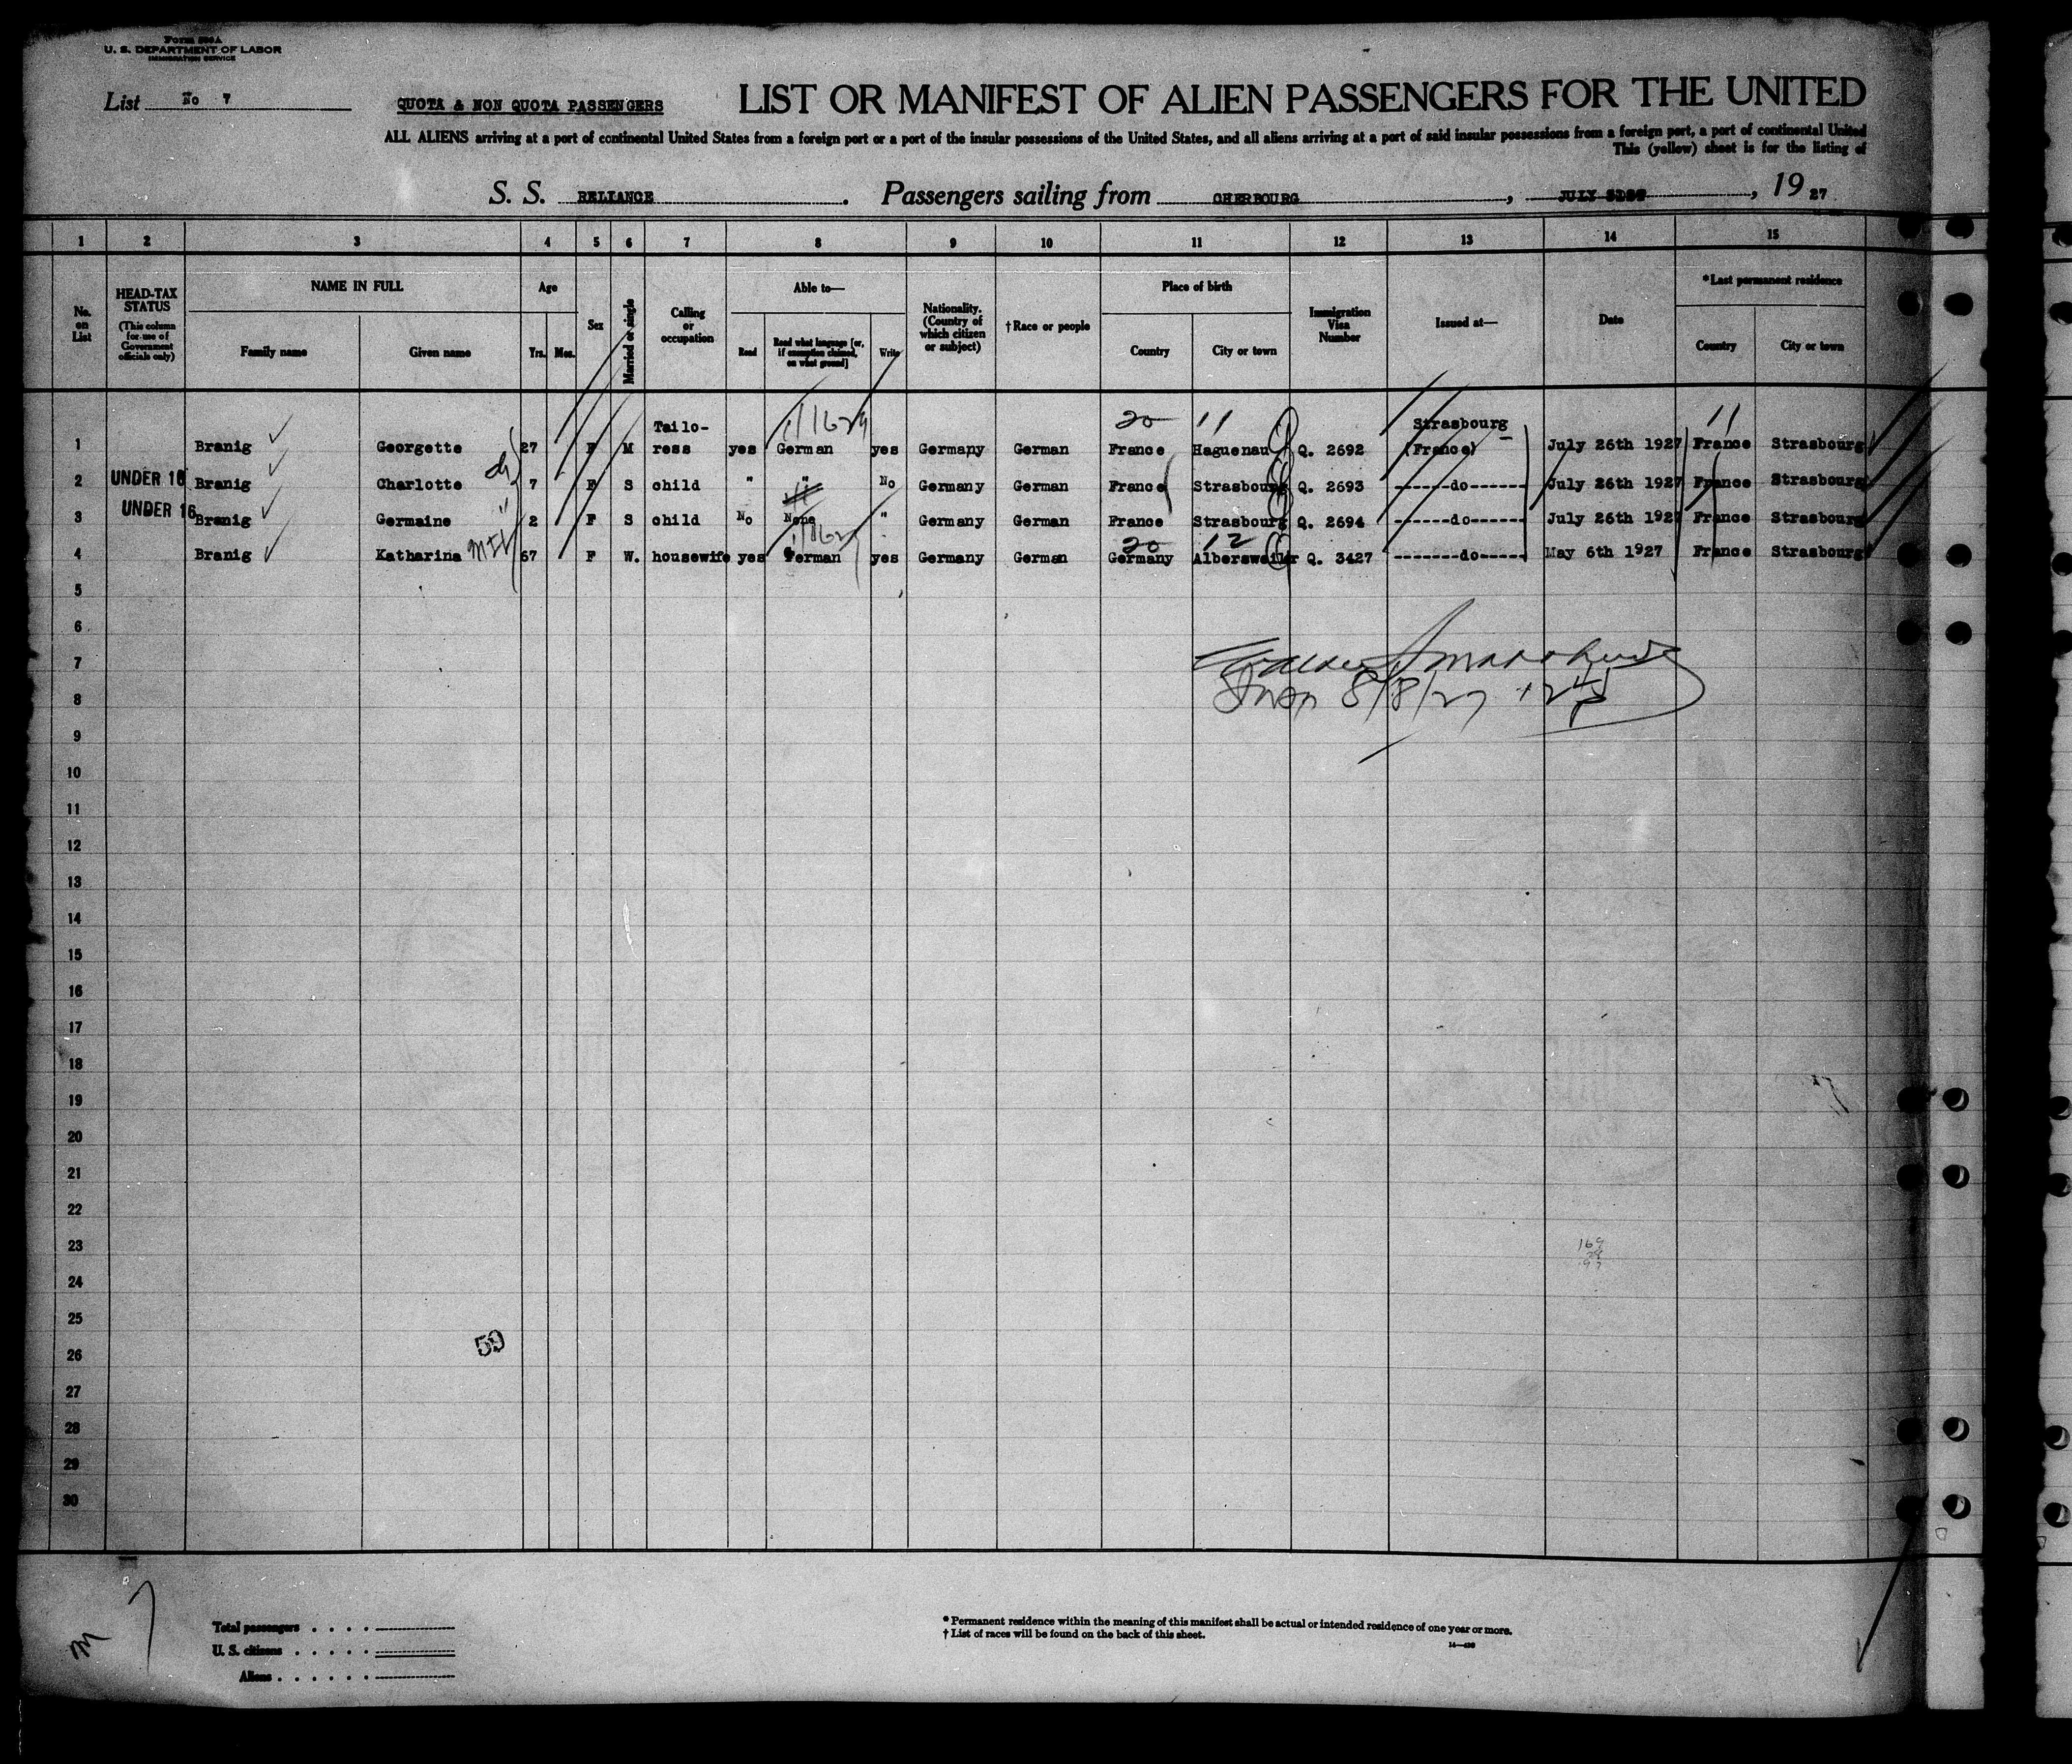 Form 500A
U. S. DEPARTMENT OF LABOR
IMMIGRATION SERVICE
List No 7
QUOTA & NON QUOTA PASSENGERS
LIST OR MANIFEST OF ALIEN PASSENGERS FOR THE UNITED
ALL ALIENS arriving at a port of continental United States from a foreign port or a port of the insular possessions of the United States, and all aliens arriving at a port of said insular possessions from a foreign port, a port of continental United
This (yellow) sheet is for the listing of
S. S. RELIANCE. Passengers sailing from CHERBOURG, JULY 31ST, 19 27
1 2 3 4 5 6 7 8 9 10 11 12 13 14 15
No. on List
HEAD-TAX STATUS (This column for use of Government officials only)
NAME IN FULL
Family name Given name
Age
Yrs. Mos.
Sex
Married or single
Calling or occupation
Able to—
Read Read what language [or, if exemption claimed, on what ground] Write
Nationality. (Country of which citizen or subject)
†Race or people
Place of birth
Country City or town
Immigration Visa Number
Issued at—
Date
*Last permanent residence
Country City or town
20 11 11
1 Branig Georgette 27 F M Tailo-ress yes German yes Germany German France Haguenau Q. 2692 Strasbourg (France) July 26th 1927 France Strasbourg
2 UNDER 16 Branig Charlotte 7 F S child " " No Germany German France Strasbourg Q. 2693 -------do------- July 26th 1927 France Strasbourg
3 UNDER 16 Branig Germaine 2 F S child No None " Germany German France Strasbourg Q. 2694 -------do------- July 26th 1927 France Strasbourg
20 12
4 Branig Katharina 67 F W. housewife yes German yes Germany German Germany Albersweiler Q. 3427 --------do------ May 6th 1927 France Strasbourg
5
6
7
8 8/8/27
9
10
11
12
13
14
15
16
17
18
19
20
21
22
23
24
25
26
27
28
29
30
59
Total passengers
U. S. citizens
Aliens
* Permanent residence within the meaning of this manifest shall be actual or intended residence of one year or more.
† List of races will be found on the back of this sheet.